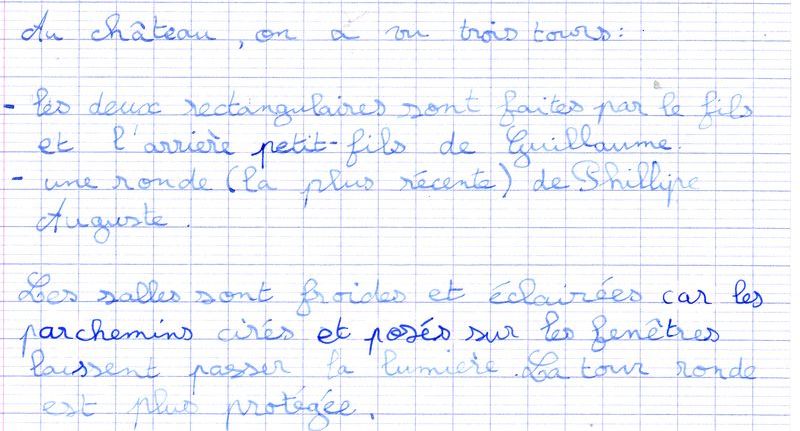 Au château, on a vu trois tours :
- les deux rectangulaires sont faites par le fils
et l'arrière petit-fils de Guillaume.
- une ronde (la plus récente) de Phillipe
Auguste.
Les salles sont froides et éclairées car les
parchemins cirés et posés sur les fenêtres
laissent passer la lumière. La tour ronde
est plus protégée.